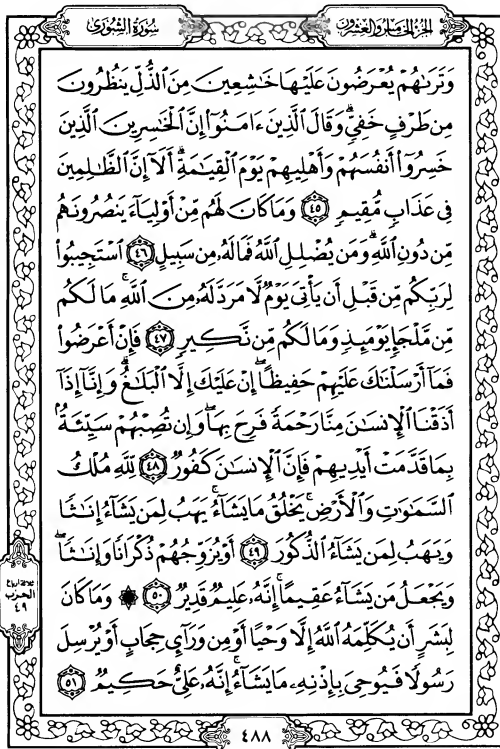 الجزء الخامس والعشرون
سورة الشورى
وَتَرَىٰهُمْ يُعْرَضُونَ عَلَيْهَا خَٰشِعِينَ مِنَ ٱلذُّلِّ يَنظُرُونَ
مِن طَرْفٍ خَفِيٍّ ۗ وَقَالَ ٱلَّذِينَ ءَامَنُوٓا۟ إِنَّ ٱلْخَٰسِرِينَ ٱلَّذِينَ
خَسِرُوٓا۟ أَنفُسَهُمْ وَأَهْلِيهِمْ يَوْمَ ٱلْقِيَٰمَةِ ۗ أَلَآ إِنَّ ٱلظَّٰلِمِينَ
فِى عَذَابٍ مُّقِيمٍ ٤٥ وَمَا كَانَ لَهُم مِّنْ أَوْلِيَآءَ يَنصُرُونَهُم
مِّن دُونِ ٱللَّهِ ۗ وَمَن يُضْلِلِ ٱللَّهُ فَمَا لَهُۥ مِن سَبِيلٍ ٤٦ ٱسْتَجِيبُوا۟
لِرَبِّكُم مِّن قَبْلِ أَن يَأْتِىَ يَوْمٌ لَّا مَرَدَّ لَهُۥ مِنَ ٱللَّهِ ۚ مَا لَكُم
مِّن مَّلْجَإٍ يَوْمَئِذٍ وَمَا لَكُم مِّن نَّكِيرٍ ٤٧ فَإِنْ أَعْرَضُوا۟
فَمَآ أَرْسَلْنَٰكَ عَلَيْهِمْ حَفِيظًا ۖ إِنْ عَلَيْكَ إِلَّا ٱلْبَلَٰغُ ۗ وَإِنَّآ إِذَآ
أَذَقْنَا ٱلْإِنسَٰنَ مِنَّا رَحْمَةً فَرِحَ بِهَا ۖ وَإِن تُصِبْهُمْ سَيِّئَةٌۢ
بِمَا قَدَّمَتْ أَيْدِيهِمْ فَإِنَّ ٱلْإِنسَٰنَ كَفُورٌ ٤٨ لِّلَّهِ مُلْكُ
ٱلسَّمَٰوَٰتِ وَٱلْأَرْضِ ۚ يَخْلُقُ مَا يَشَآءُ ۚ يَهَبُ لِمَن يَشَآءُ إِنَٰثًا
وَيَهَبُ لِمَن يَشَآءُ ٱلذُّكُورَ ٤٩ أَوْ يُزَوِّجُهُمْ ذُكْرَانًا وَإِنَٰثًا ۖ
وَيَجْعَلُ مَن يَشَآءُ عَقِيمًا ۚ إِنَّهُۥ عَلِيمٌ قَدِيرٌ ٥٠ ۞ وَمَا كَانَ
لِبَشَرٍ أَن يُكَلِّمَهُ ٱللَّهُ إِلَّا وَحْيًا أَوْ مِن وَرَآئِ حِجَابٍ أَوْ يُرْسِلَ
رَسُولًا فَيُوحِىَ بِإِذْنِهِۦ مَا يَشَآءُ ۚ إِنَّهُۥ عَلِىٌّ حَكِيمٌ ٥١
ثلاثة أرباع
الحزب
٤٩
٤٨٨